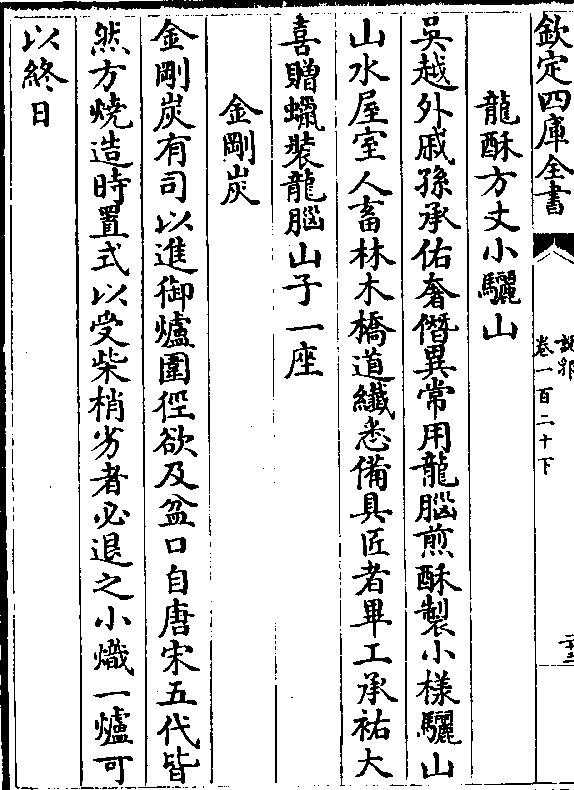 欽定四庫全書
說郛
卷一百二十下
龍酥方丈小驪山
吳越外戚孫承佑奢僭異常用龍腦煎酥製小樣驪山
山水屋室人畜林木橋道纖悉備具匠者畢工承祐大
喜贈蠟裝龍腦山子一座
金剛炭
金剛炭有司以進御爐圍徑欲及盆口自唐宋五代皆
然方燒造時置式以受柴梢劣者必退之小熾一爐可
以終日